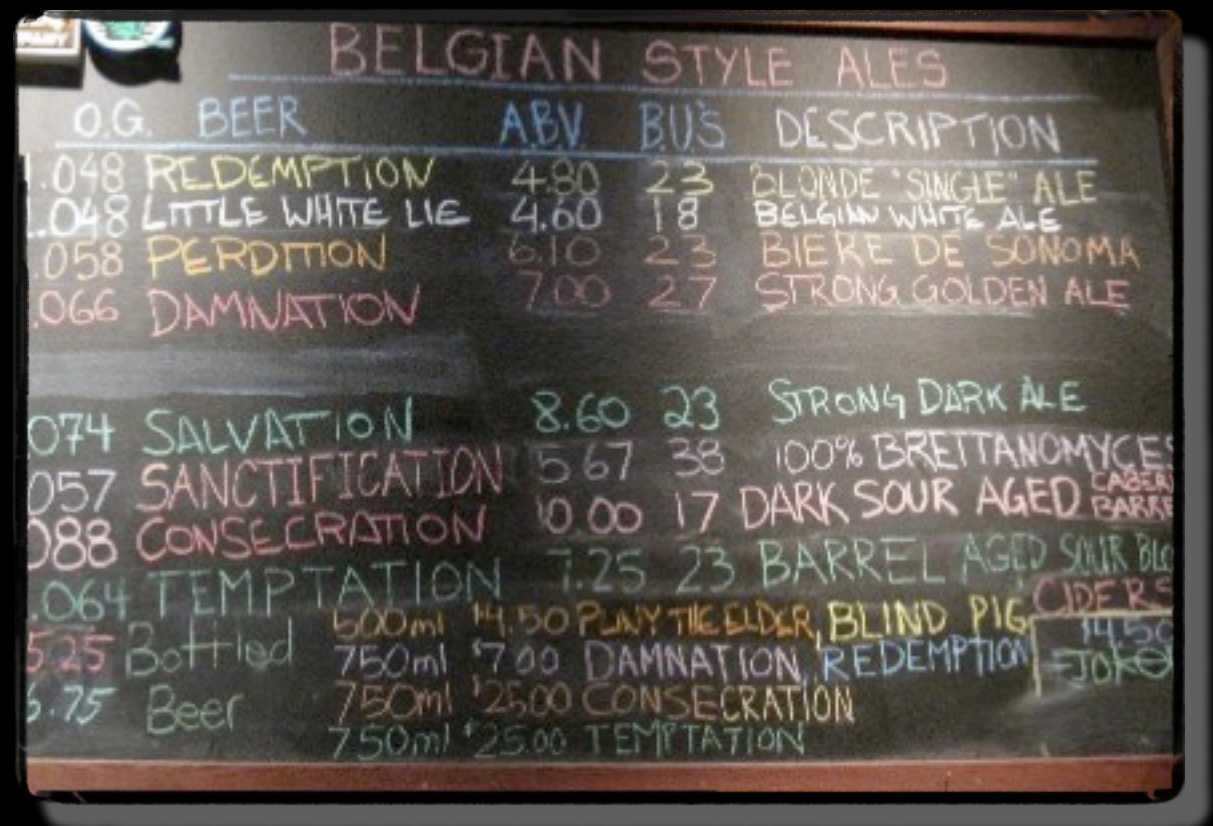 PANY
BELGIAN STYLE ALES
O.G. BEER A.B.V. B.U.'S DESCRIPTION
1.048 REDEMPTION 4.80 23 BLONDE "SINGLE" ALE
1.048 LITTLE WHITE LIE 4.60 18 BELGIAN WHITE ALE
.058 PERDITION 6.10 23 BIERE DE SONOMA
.066 DAMNATION 7.00 27 STRONG GOLDEN ALE
074 SALVATION 8.60 23 STRONG DARK ALE
057 SANCTIFICATION 5.67 38 100% BRETTANOMYCES
088 CONSECRATION 10.00 17 DARK SOUR AGED CABER BARRE
.064 TEMPTATION 7.25 23 BARREL AGED SOUR BLO
CIDERS
500ml $4.50 PLINY THE ELDER, BLIND PIG $4.50
5.25 Bottled 750ml $7.00 DAMNATION, REDEMPTION
6.75 Beer 750ml $25.00 CONSECRATION
750ml $25.00 TEMPTATION